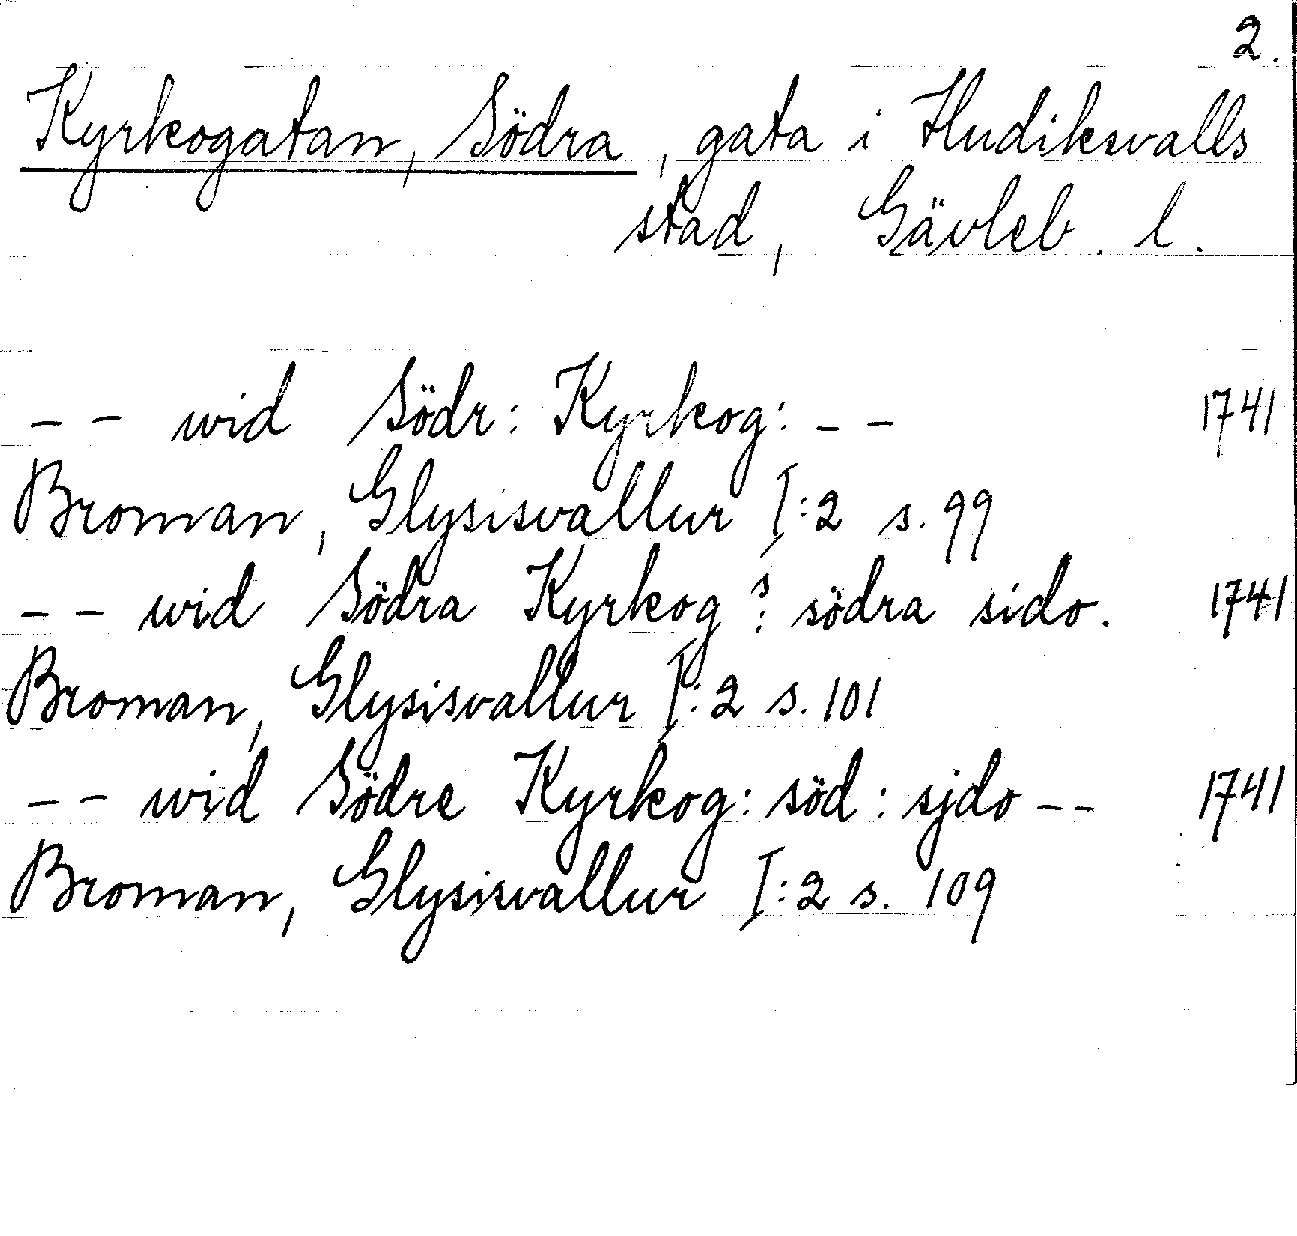 2.
Kyrkogatan, Södra, gata i Hudiksvalls
stad, Gävleb. l.
-- wid Södr: Kyrkog: -- 1741
Broman, Glysisvallur I:2 s. 99
-- wid Södra Kyrkog? södra sido. 1741
Broman, Glysisvallur I:2 s. 101
-- wid Södre Kyrkog: söd: sjdo -- 1741
Broman, Glysisvallur I:2 s. 109